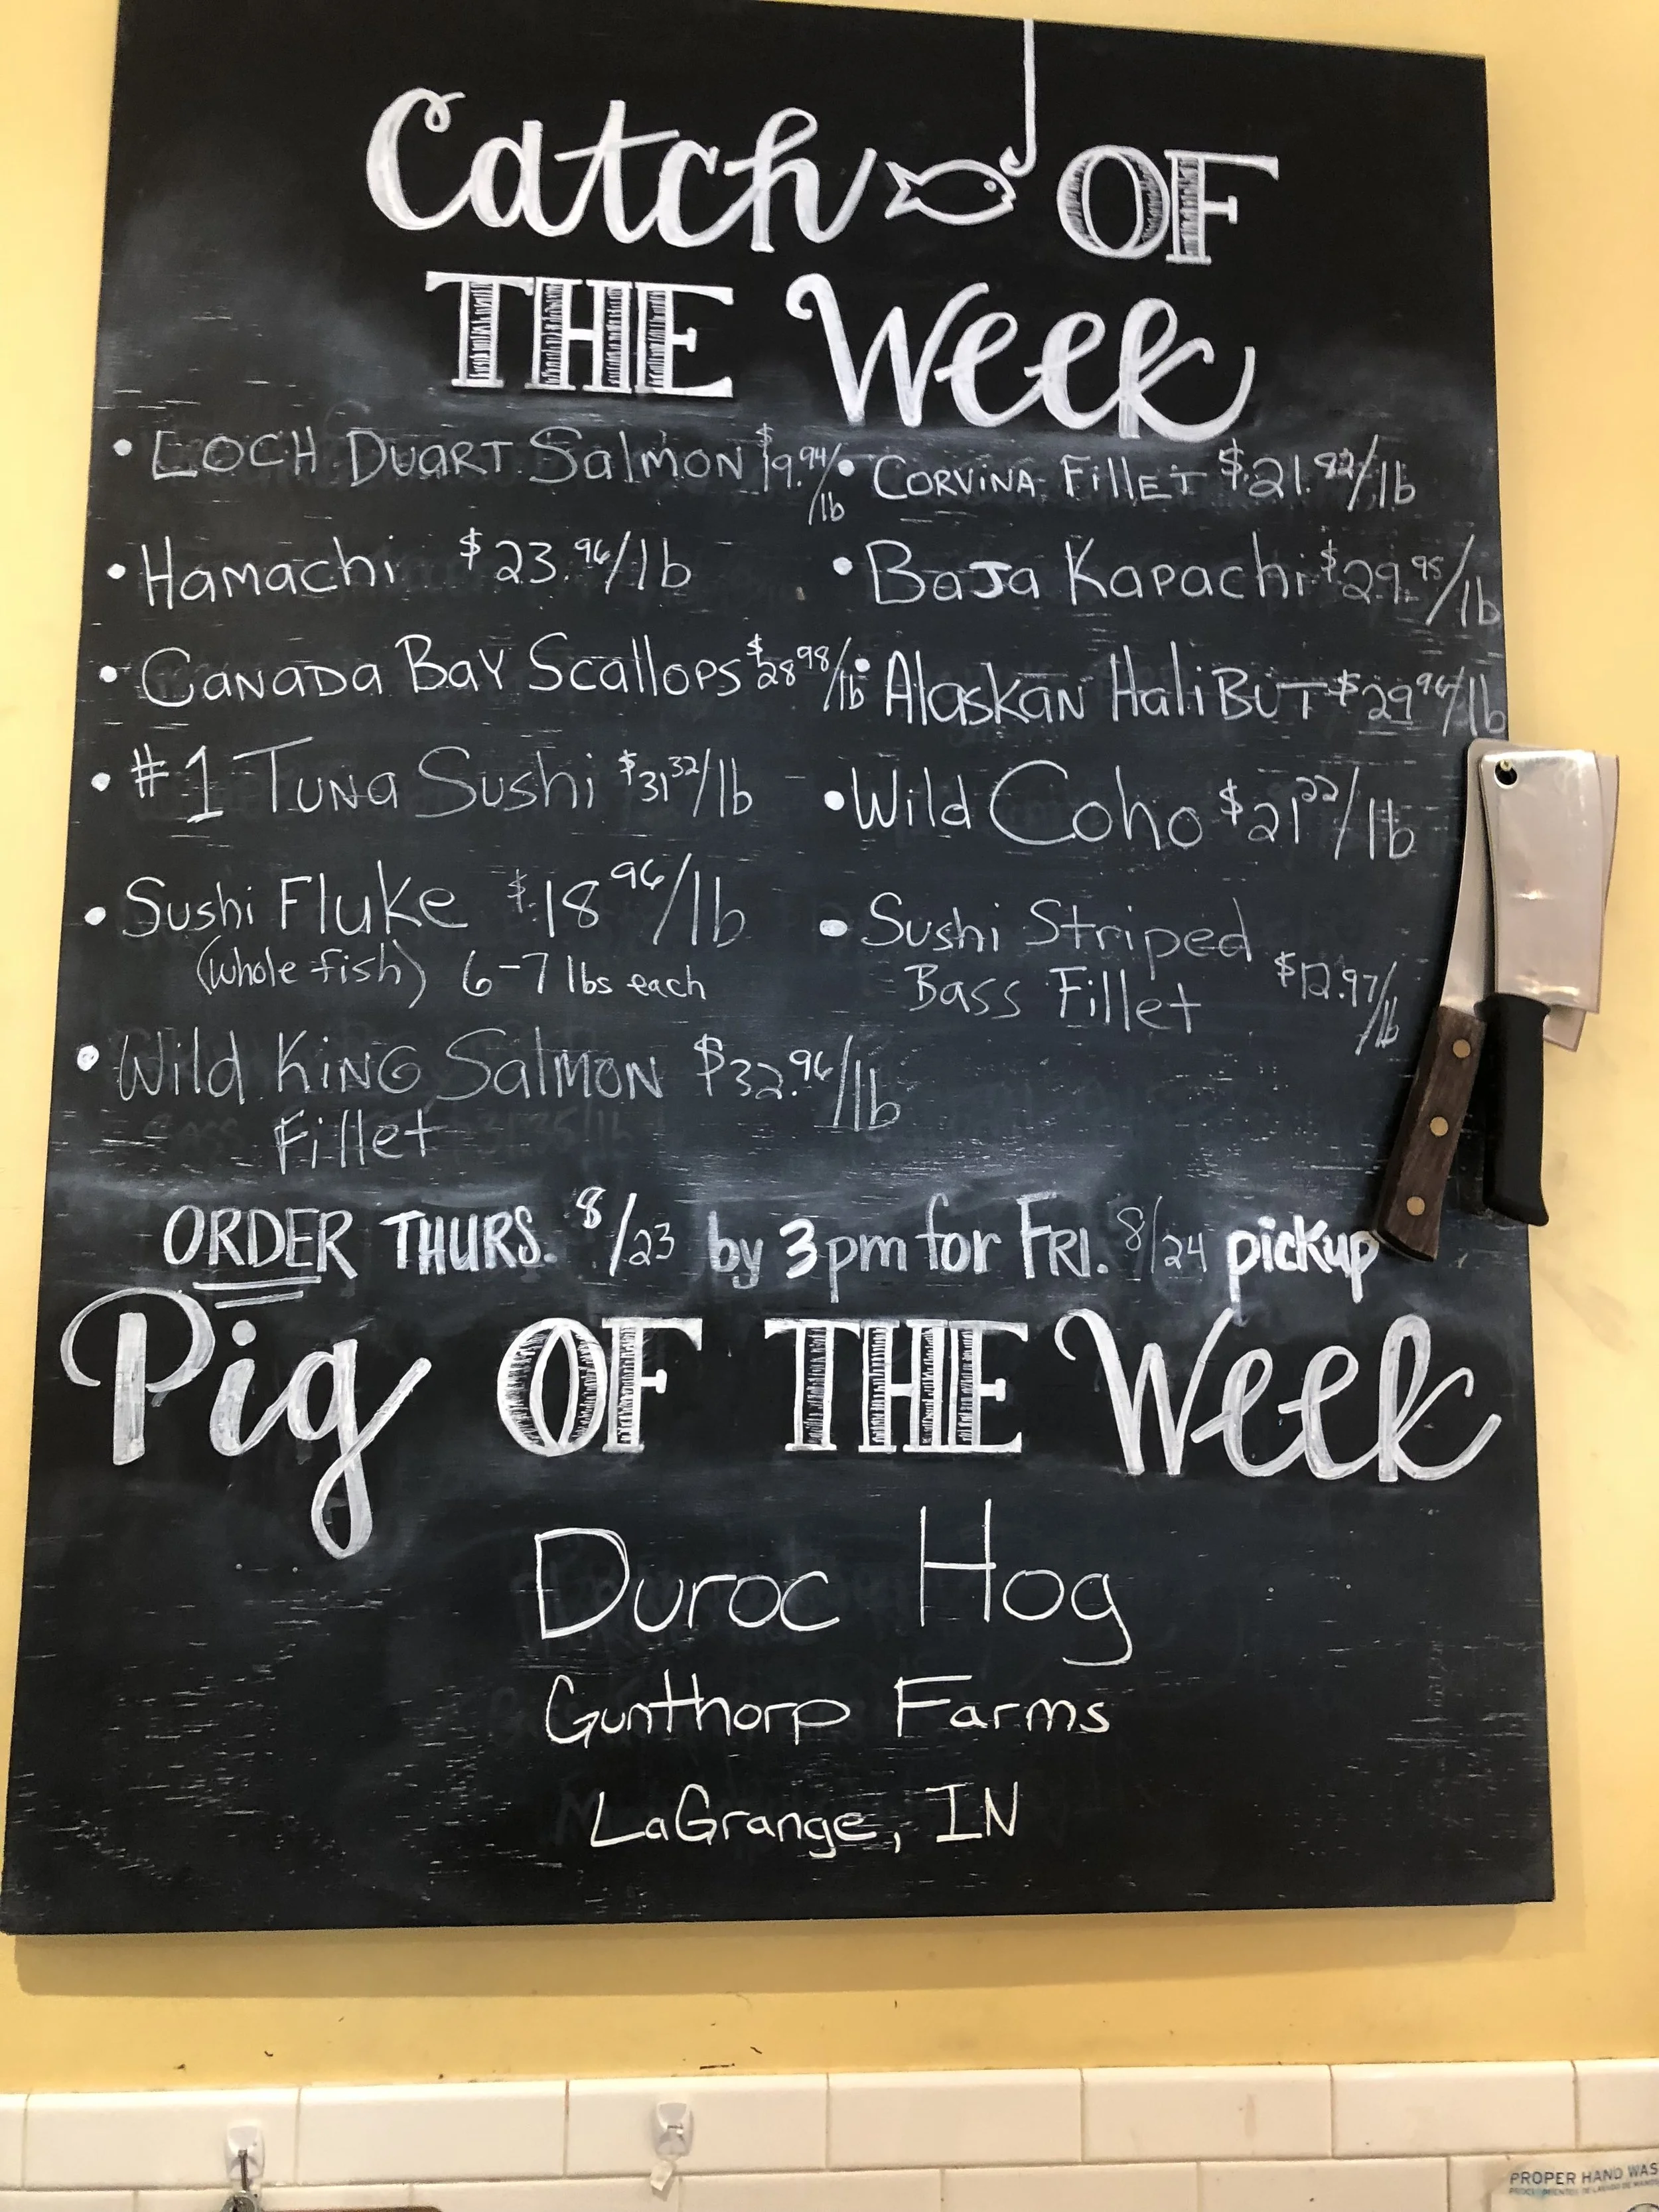 Catch OF
THE Week
• LOCH DUART Salmon $19.94/lb
• Hamachi $23.96/lb
• CANADA BAY Scallops $28 98/lb
• #1 Tuna Sushi $31 32/lb
• Sushi Fluke $18 96/lb
(whole fish) 6-7 lbs each
• Wild KING Salmon $32.96/lb
Fillet
• CORVINA Fillet $21.82/lb
• BaJa Kapachi $29.95/lb
• Alaskan HaliBUT $29 96/lb
• Wild Coho $21 22/lb
• Sushi Striped
Bass Fillet $12.97/lb
ORDER THURS. 8/23 by 3pm for FRI. 8/24 pickup
Pig OF THE Week
Duroc Hog
Gunthorp Farms
LaGrange, IN
PROPER HAND WAS